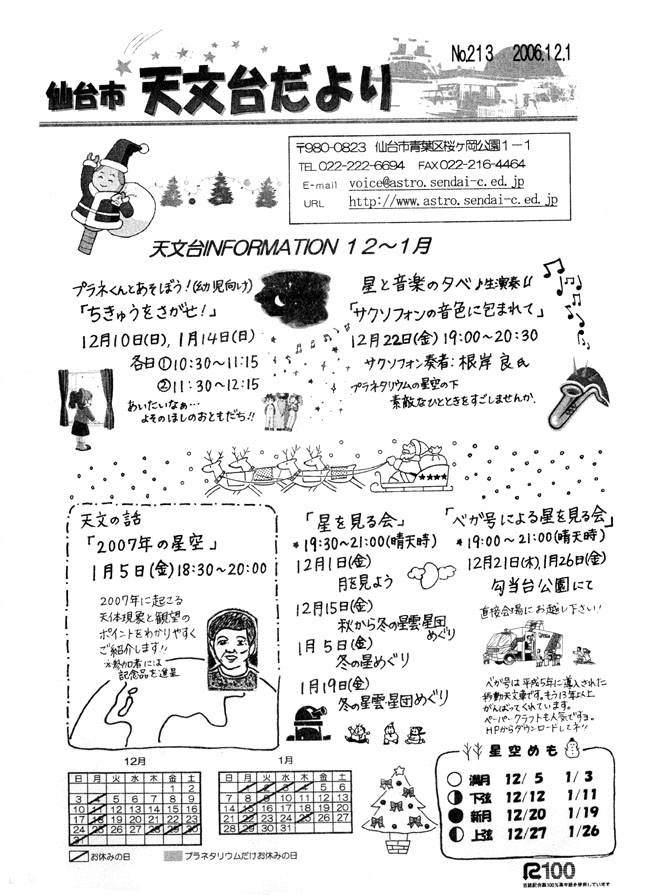 No.213 2006.12.1
仙台市 天文台だより
〒980-0823 仙台市青葉区桜ヶ岡公園1－1
TEL 022-222-6694 FAX 022-216-4464
E-mail voice@astro.sendai-c.ed.jp
URL http://www.astro.sendai-c.ed.jp
天文台INFORMATION 12～1月
プラネくんとあそぼう!(幼児向け)
「ちきゅうをさがせ!」
12月10日(日), 1月14日(日)
各日①10:30～11:15
②11:30～12:15
あいたいなぁ…
よそのほしのおともだち!!
星と音楽の夕べ♪生演奏♪♪
「サクソフォンの音色に包まれて」
12月22日(金) 19:00～20:30
サクソフォン奏者:根岸 良氏
プラネタリウムの星空の下
素敵なひとときをすごしませんか.
天文の話
「2007年の星空」
1月5日(金)18:30～20:00
2007年に起こる
天体現象と観望の
ポイントをわかりやすく
ご紹介します!!
※参加者には
記念品を進呈
「星を見る会」
*19:30～21:00(晴天時)
12月1日(金)
月を見よう
12月15日(金)
秋から冬の星雲星団
めぐり
1月5日(金)
冬の星めぐり
1月19日(金)
冬の星雲・星団めぐり
「ベガ号による星を見る会」
*19:00～21:00(晴天時)
12月21日(木), 1月26日(金)
勾当台公園にて
直接会場にお越し下さい!
ベガ号は平成5年に導入された
移動天文車です。もう13年以上
がんばってくれています。
ペーパークラフトも人気ですヨ。
HPからダウンロードしてネ!!
12月
日 月 火 水 木 金 土
1 2
3 4 5 6 7 8 9
10 11 12 13 14 15 16
17 18 19 20 21 22 23
24 25 26 27 28 29 30
31
1月
日 月 火 水 木 金 土
1 2 3 4 5 6
7 8 9 10 11 12 13
14 15 16 17 18 19 20
21 22 23 24 25 26 27
28 29 30 31
お休みの日 プラネタリウムだけお休みの日
星空めも
満月 12/5 1/3
下弦 12/12 1/11
新月 12/20 1/19
上弦 12/27 1/26
R100
古紙配合率100%再生紙を使用しています